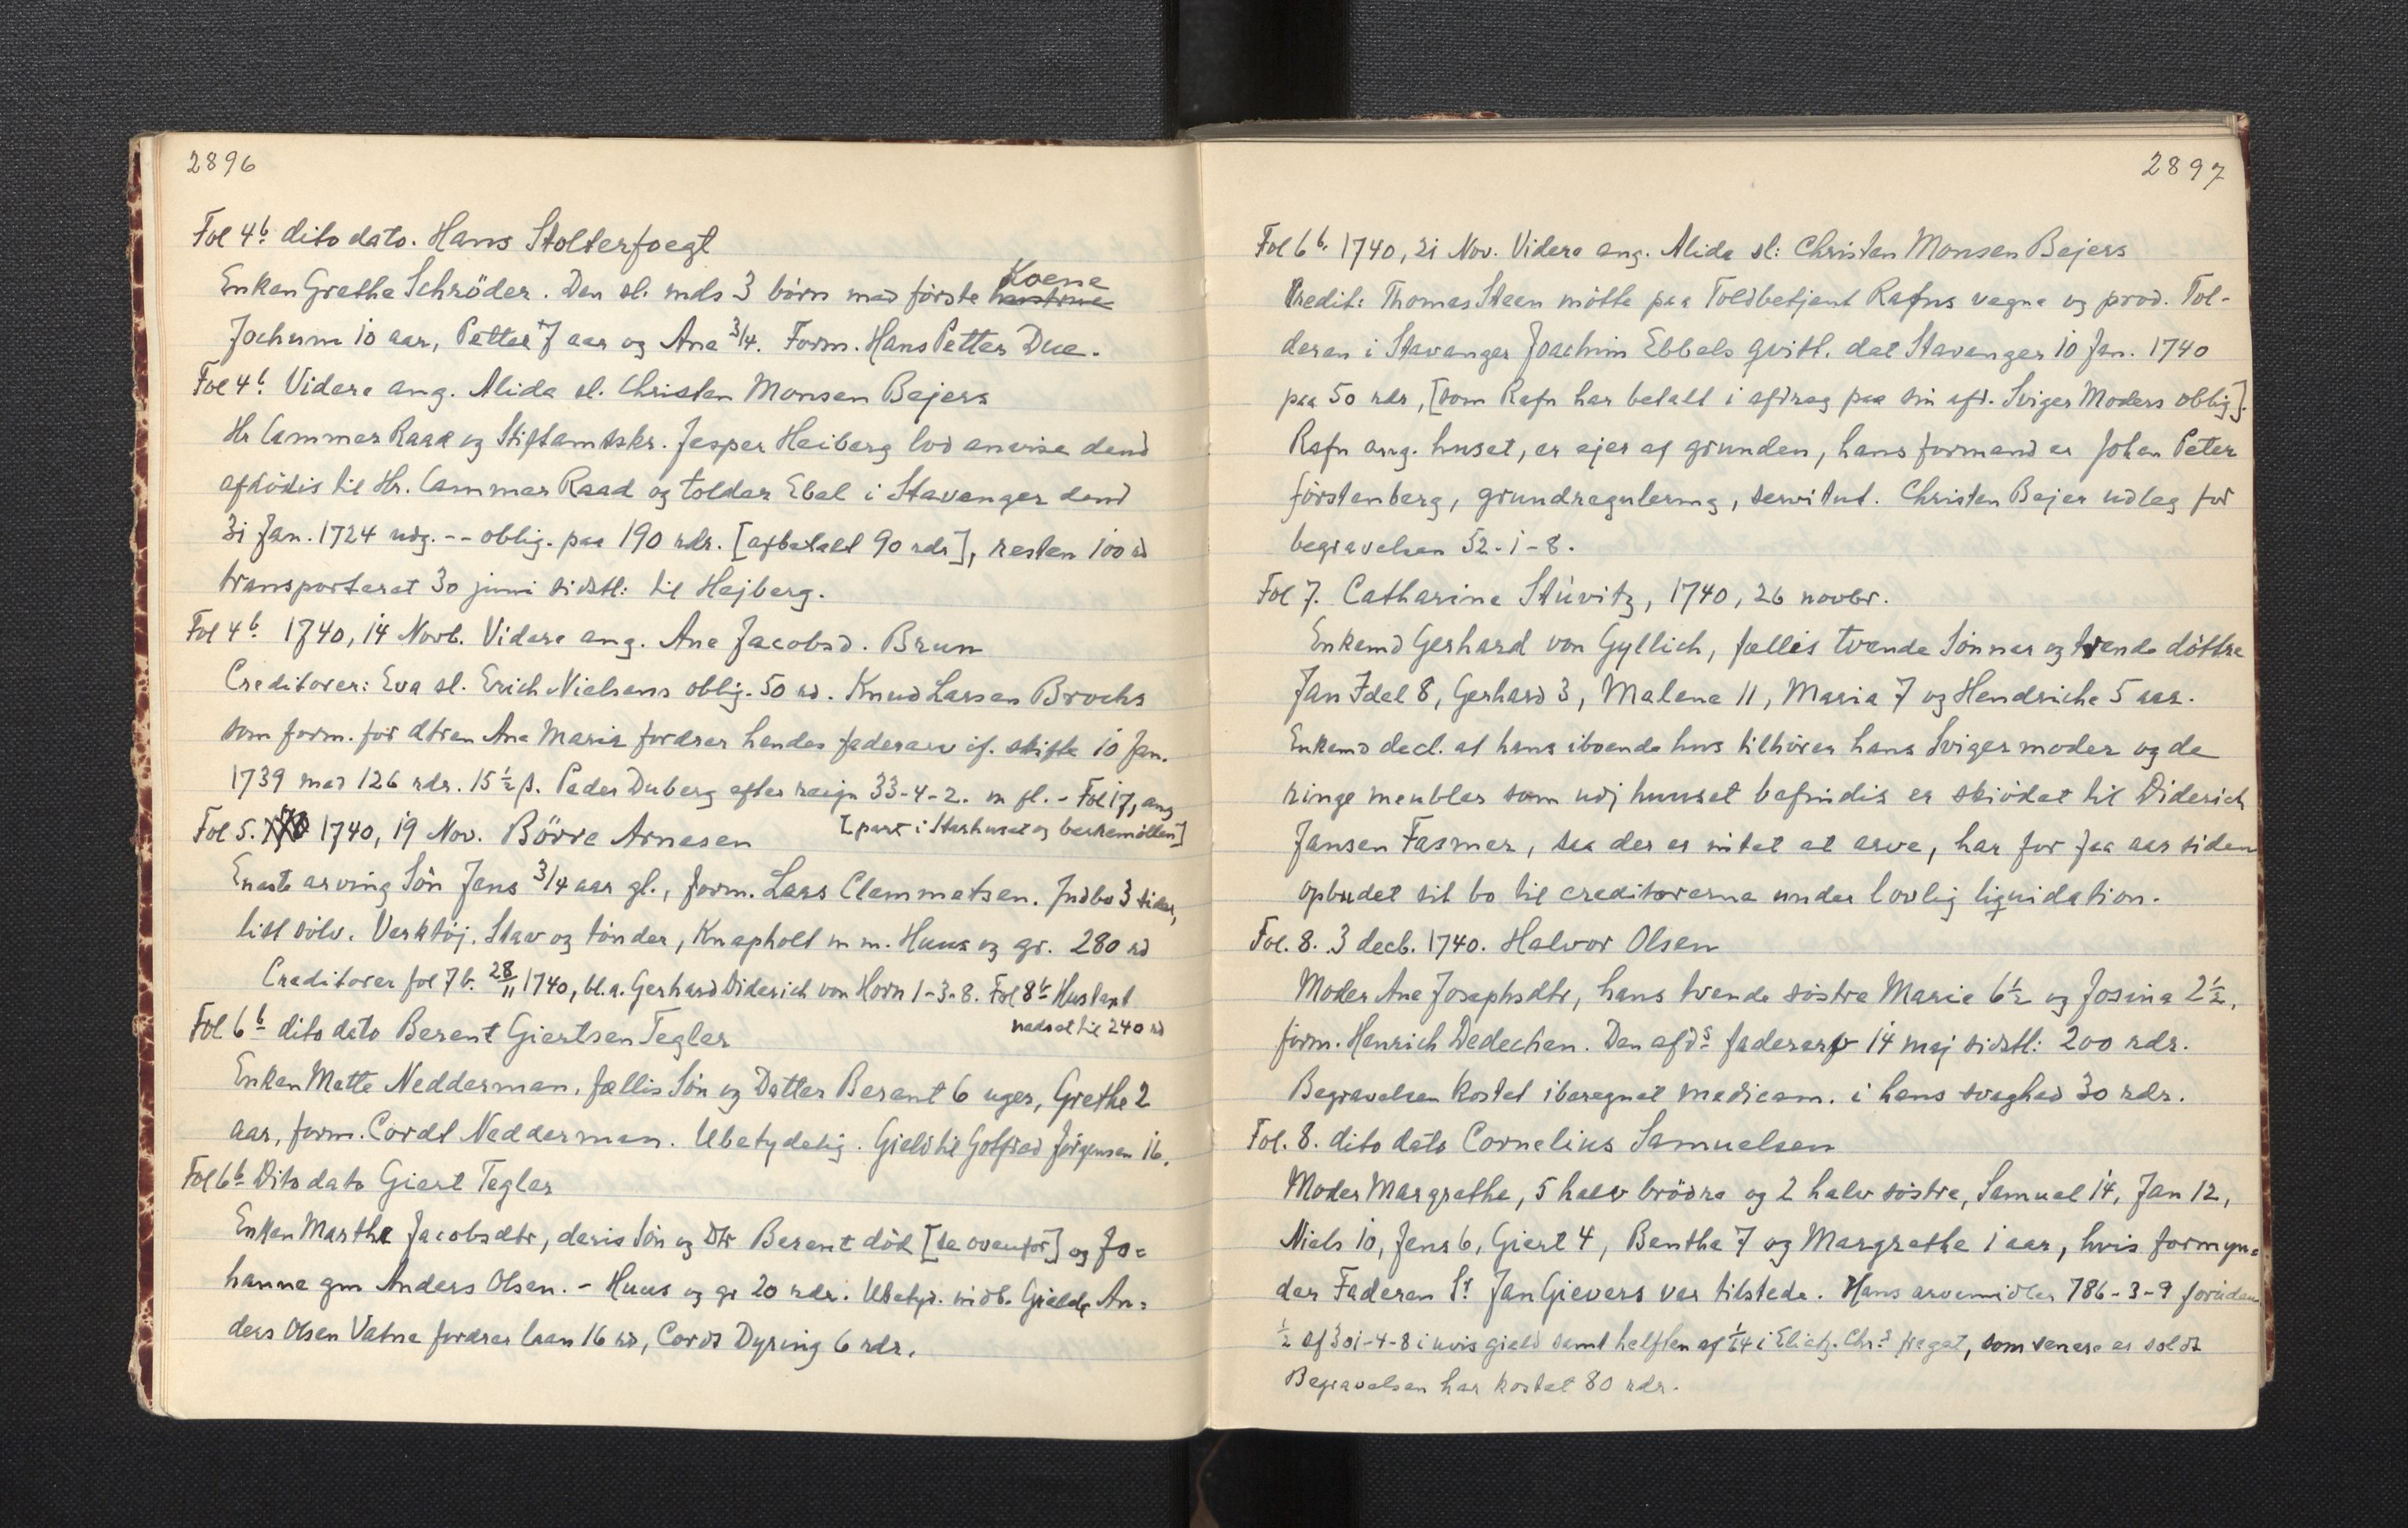 2896
Fol 4b dito dato. Hans Stolterfoegt
Enken Grethe Schröder. Den sl. mds 3 börn med förste Koene
Jochum 10 aar, Petter 7 aar og Ane 3/4. Form. Hans Petter Due.
Fol 4b Videre ang. Alida sl. Christen Monsen Bejers
Hr Cammer Raad og Stiftamtskr. Jesper Heiberg lod anvise dend
afdödis til Hr. Cammer Raad og tolder Ebel i Stavanger dend
31 Jan. 1724 udg. -- oblig. paa 190 rdr. [afbetalt 90 rdr], resten 100 rd
transporteret 30 juni sidstl: til Hejberg.
Fol 4b 1740, 14 Novb. Videre ang. Ane Jacobsd. Brun
Creditorer: Eva sl. Erich Nielsens oblig. 50 rd. Knud Larsen Brochs
som form. for dtren Ane Maria fordrer hendes faderarv if. skifte 10 Jan.
1739 med 126 rdr. 15 1/2 β. Peder Duberg efter regn 33-4-2. m fl. - Fol 17, ang
[part i Starhuset og barkemöllen]
Fol 5. 1740, 19 Nov. Börre Arnesen
Eneste arving Sön Jens 3/4 aar gl., form. Lars Clemmetsen. Indbo 3 sider,
litt sölv. Verktöj. Stav og tönder, Knapholt m m. Huus og gr. 280 rd
Creditorer fol 7b. 28/11 1740, bl.a. Gerhard Diderich von Horn 1-3-8. Fol 8b Hustaxt
nedsat til 240 rd
Fol 6b dito dato Berent Giertsen Tegler
Enken Mette Nedderman, fællis Sön og Datter Berent 6 uger, Grethe 2
aar, form. Cordt Nedderman. Ubetydelig. Gield til Gotfred Jörgensen 16.
Fol 6b Dito dato Giert Tegler
Enken Marthe Jacobsdtr, deris Sön og Dtr Berent död [se ovenfor] og Jo=
hanne gm Anders Olsen. - Huus og gr 20 rdr. Ubetyd. indb. Gield, An=
ders Olsen Vatne fordrer laan 16 rd, Cordt Dyring 6 rdr.
2897
Fol 6b. 1740, 21 Nov. Videre ang. Alida sl: Christen Monsen Bejers
Kredit: Thomas Steen mötte paa Toldbetjent Rafns vegne og prod. Tol-
deren i Stavanger Joachim Ebbels qvitt. dat Stavanger 10 Jan. 1740
paa 50 rdr, [som Rafn har betalt i afdrag paa sin afd. Sviger Moders oblig].
Rafn ang. huset, er ejer af grunden, hans formand er Johan Peter
förstenberg, grundregulering, servitut. Christen Bejer udlæg for
begravelsen 52-1-8.
Fol 7. Catharine Stüvitz, 1740, 26 novbr.
Enkemd Gerhard von Gyllich, fællis tvende Sönner og trende döttre
Jan Idel 8, Gerhard 3, Malene 11, Maria 7 og Hendriche 5 aar.
Enkemd decl. at hans iboende hus tilhörer hans Svigermoder og de
ringe meubler som udj huuset befindis er skiödet til Diderich
Jansen Fasmer, saa der er intet at arve, har for faa aar siden
opbudet sit bo til creditorerne under lovlig liquidation.
Fol. 8. 3 decb. 1740. Halvor Olsen
Moder Ane Josephsdtr, hans tvende söstre Marie 6 1/2 og Josina 2 1/2,
form. Henrich Dedechen. Den afds faderarv 14 maj sidstl: 200 rdr.
Begravelsen kostet iberegnet medicam. i hans svaghed 30 rdr.
Fol. 8. dito dato Cornelius Samuelsen
Moder Margrethe, 5 halv brödre og 2 halv söstre, Samuel 14, Jan 12,
Niels 10, Jens 6, Giert 4, Benthe 7 og Margrethe 1 aar, hvis formyn=
der Faderen Sr Jan Gievers var tilstede. Hans arvemidler 786-3-9 foruden
1/2 af 301-4-8 i uvis gield samt helften af 1/14 i Elieh. Chr.s fregat, som senere er soldt
Begravelsen har kostet 80 rdr.